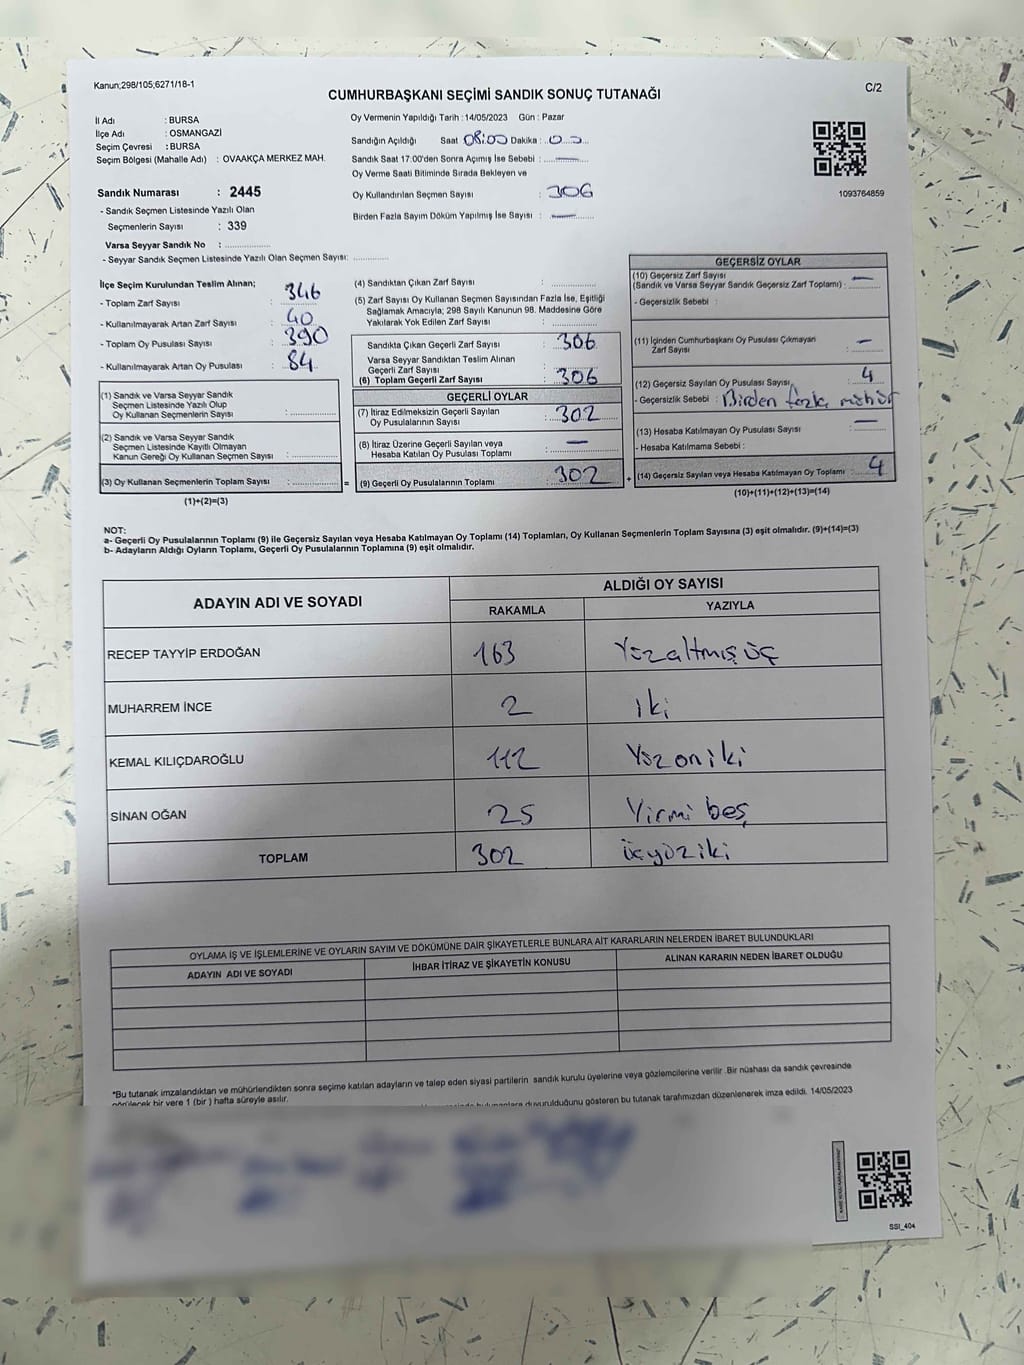 Kanun;298/105;6271/18-1
C/2
CUMHURBAŞKANI SEÇİMİ SANDIK SONUÇ TUTANAĞI
İl Adı : BURSA
İlçe Adı : OSMANGAZİ
Seçim Çevresi : BURSA
Seçim Bölgesi (Mahalle Adı) : OVAAKÇA MERKEZ MAH.
Sandık Numarası : 2445
- Sandık Seçmen Listesinde Yazılı Olan
Seçmenlerin Sayısı : 339
Varsa Seyyar Sandık No :
- Seyyar Sandık Seçmen Listesinde Yazılı Olan Seçmen Sayısı:
Oy Vermenin Yapıldığı Tarih : 14/05/2023 Gün : Pazar
Sandığın Açıldığı Saat 08:00 Dakika : 00
Sandık Saat 17.00'den Sonra Açımış İse Sebebi : —
Oy Verme Saati Bitiminde Sırada Bekleyen ve
Oy Kullandırılan Seçmen Sayısı : 306
Birden Fazla Sayım Döküm Yapılmış İse Sayısı : —
1093764859
İlçe Seçim Kurulundan Teslim Alınan;
- Toplam Zarf Sayısı : 346
- Kullanılmayarak Artan Zarf Sayısı : 40
- Toplam Oy Pusulası Sayısı : 390
- Kullanılmayarak Artan Oy Pusulası : 84
(1) Sandık ve Varsa Seyyar Sandık
Seçmen Listesinde Yazılı Olup
Oy Kullanan Seçmenlerin Sayısı :
(2) Sandık ve Varsa Seyyar Sandık
Seçmen Listesinde Kayıtlı Olmayan
Kanun Gereği Oy Kullanan Seçmen Sayısı :
(3) Oy Kullanan Seçmenlerin Toplam Sayısı : =
(1)+(2)=(3)
(4) Sandıktan Çıkan Zarf Sayısı :
(5) Zarf Sayısı Oy Kullanan Seçmen Sayısından Fazla İse, Eşitliği
Sağlamak Amacıyla; 298 Sayılı Kanunun 98. Maddesine Göre
Yakılarak Yok Edilen Zarf Sayısı :
Sandıkta Çıkan Geçerli Zarf Sayısı : 306
Varsa Seyyar Sandıktan Teslim Alınan
Geçerli Zarf Sayısı :
(6) Toplam Geçerli Zarf Sayısı : 306
GEÇERLİ OYLAR
(7) İtiraz Edilmeksizin Geçerli Sayılan
Oy Pusulalarının Sayısı : 302
(8) İtiraz Üzerine Geçerli Sayılan veya
Hesaba Katılan Oy Pusulası Toplamı : —
(9) Geçerli Oy Pusulalarının Toplamı : 302 +
GEÇERSİZ OYLAR
(10) Geçersiz Zarf Sayısı
(Sandık ve Varsa Seyyar Sandık Geçersiz Zarf Toplamı) : —
- Geçersizlik Sebebi :
(11) İçinden Cumhurbaşkanı Oy Pusulası Çıkmayan
Zarf Sayısı : —
(12) Geçersiz Sayılan Oy Pusulası Sayısı : 4
- Geçersizlik Sebebi : Birden fazla mühür
(13) Hesaba Katılmayan Oy Pusulası Sayısı : —
- Hesaba Katılmama Sebebi :
(14) Geçersiz Sayılan veya Hesaba Katılmayan Oy Toplamı : 4
(10)+(11)+(12)+(13)=(14)
NOT:
a- Geçerli Oy Pusulalarının Toplamı (9) ile Geçersiz Sayılan veya Hesaba Katılmayan Oy Toplamı (14) Toplamları, Oy Kullanan Seçmenlerin Toplam Sayısına (3) eşit olmalıdır. (9)+(14)=(3)
b- Adayların Aldığı Oyların Toplamı, Geçerli Oy Pusulalarının Toplamına (9) eşit olmalıdır.
ADAYIN ADI VE SOYADI
ALDIĞI OY SAYISI
RAKAMLA YAZIYLA
RECEP TAYYİP ERDOĞAN 163 Yüzaltmış üç
MUHARREM İNCE 2 iki
KEMAL KILIÇDAROĞLU 112 Yüzoniki
SİNAN OĞAN 25 Yirmi beş
TOPLAM 302 üçyüziki
OYLAMA İŞ VE İŞLEMLERİNE VE OYLARIN SAYIM VE DÖKÜMÜNE DAİR ŞİKAYETLERLE BUNLARA AİT KARARLARIN NELERDEN İBARET BULUNDUKLARI
ADAYIN ADI VE SOYADI İHBAR İTİRAZ VE ŞİKAYETİN KONUSU ALINAN KARARIN NEDEN İBARET OLDUĞU
*Bu tutanak imzalandıktan ve mühürlendikten sonra seçime katılan adayların ve talep eden siyasi partilerin sandık kurulu üyelerine veya gözlemcilerine verilir .Bir nüshası da sandık çevresinde
görülecek bir yere 1 (bir ) hafta süreyle asılır.
duyurulduğunu gösteren bu tutanak tarafımızdan düzenlenerek imza edildi. 14/05/2023
SSI_404